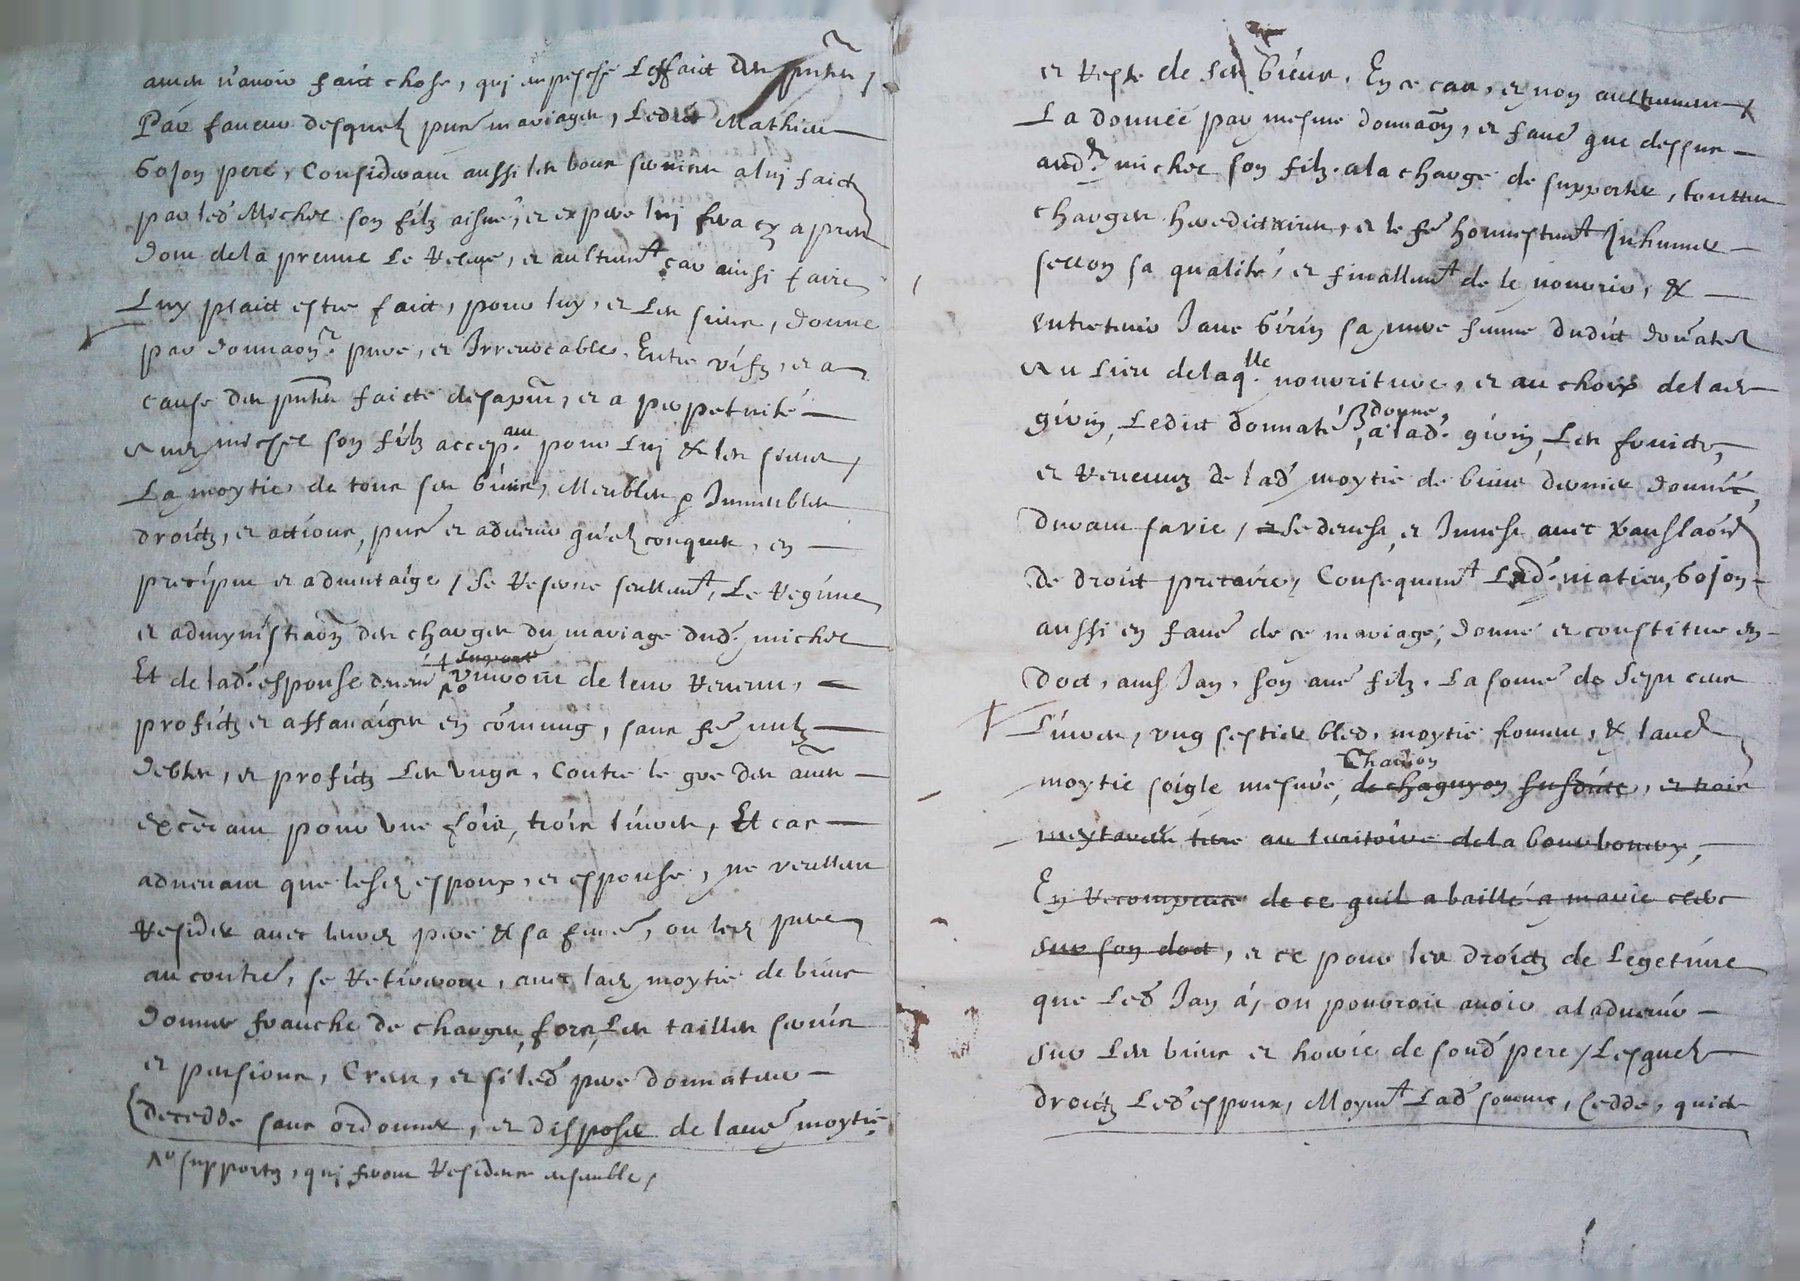 avoir faict chose, qui empesche Leffaict des pntes,
Par faveur desquelz pntz mariages, Ledict Mathieu
Bojon pere, Considerant aussi les bons services a luy faictz
par led Michel son filz aisné, et espere luy fera cy apres
dont de la preuve Le releve, et aultremt car ainsi faire
Luy plaict estre faict, pour luy, et Les siens, donne
par donnaon pure, et Irrevocable, Entre vifz, et a
cause des pntes faicte desapnt, et a perpetuité
Aud michel son filz accepant pour Luy & les siens,
La moytie de tous ses biens, Meubles & Immeubles
droictz, et actions, pns et advenir quelconques, en
precipu et advantaige, Se Reserve seullemt, Le Regime
et admynistraon des charges du mariage dud. michel
Et de lad. espouse de leur revenu,
profictz et affanaiges en commung, sans fe nulz
debtes, et profictz Les ungs, Contre le gre des aues
excedant pour une fois, trois livres, Et cas
advenant que lesd espoux, et espouse, ne veullent
Resider avec leurd pere & sa fme, ou led pere
au contre, se Retireront, avec lad moytie de biens
donnes franche de charges, fors, Les tailles servis
et pensions, Crees, et si led pere donnateur
decedde sans ordonner, et disposer de laue moytie
supportz, qui feront Residence ensemble,
et reste de ses biens, En ce cas, et non aultrement
La donnee par mesme donnaon, et faveur que dessus
aud. michel son filz. a la charge de supporter, touttes
charges hereditaires, et le fe honnestemt Inhumer
sellon sa qualité, et finallemt de le nourrir, &
entretenir Jane Girin sa mere femme dudict donater
Au Lieu de laqlle nourriture, et au choix de lad
girin, Ledict donnater donne, a lad. girin, Les fruictz,
et Revenuz de lad moytie de biens dernier donnée,
durant sa vie, et Se devest, et Invest avec translaon
de droict precaire, Consequemt Led. matieu Bojon
aussi en faver de ce mariage, donne et constitue en
doct, aud Jan, son aue filz, La some de Sept cens
Livres, ung sestier bled, moytie froment, & laue
moytie soigle mesure, Charion de chaguyon susdicte, et trois
meytarees terre au territoire de la bourbonery,
En Recompence de ce quil a baillé a marie
sur son doct, et ce pour les droictz de Legetime
que Led Jan a, ou pourroit avoir a ladvenir
sur Les biens et hoirie de sond pere, Lesquelz
droictz Led espoux, Moyent Lad somme, Cedde, quicte